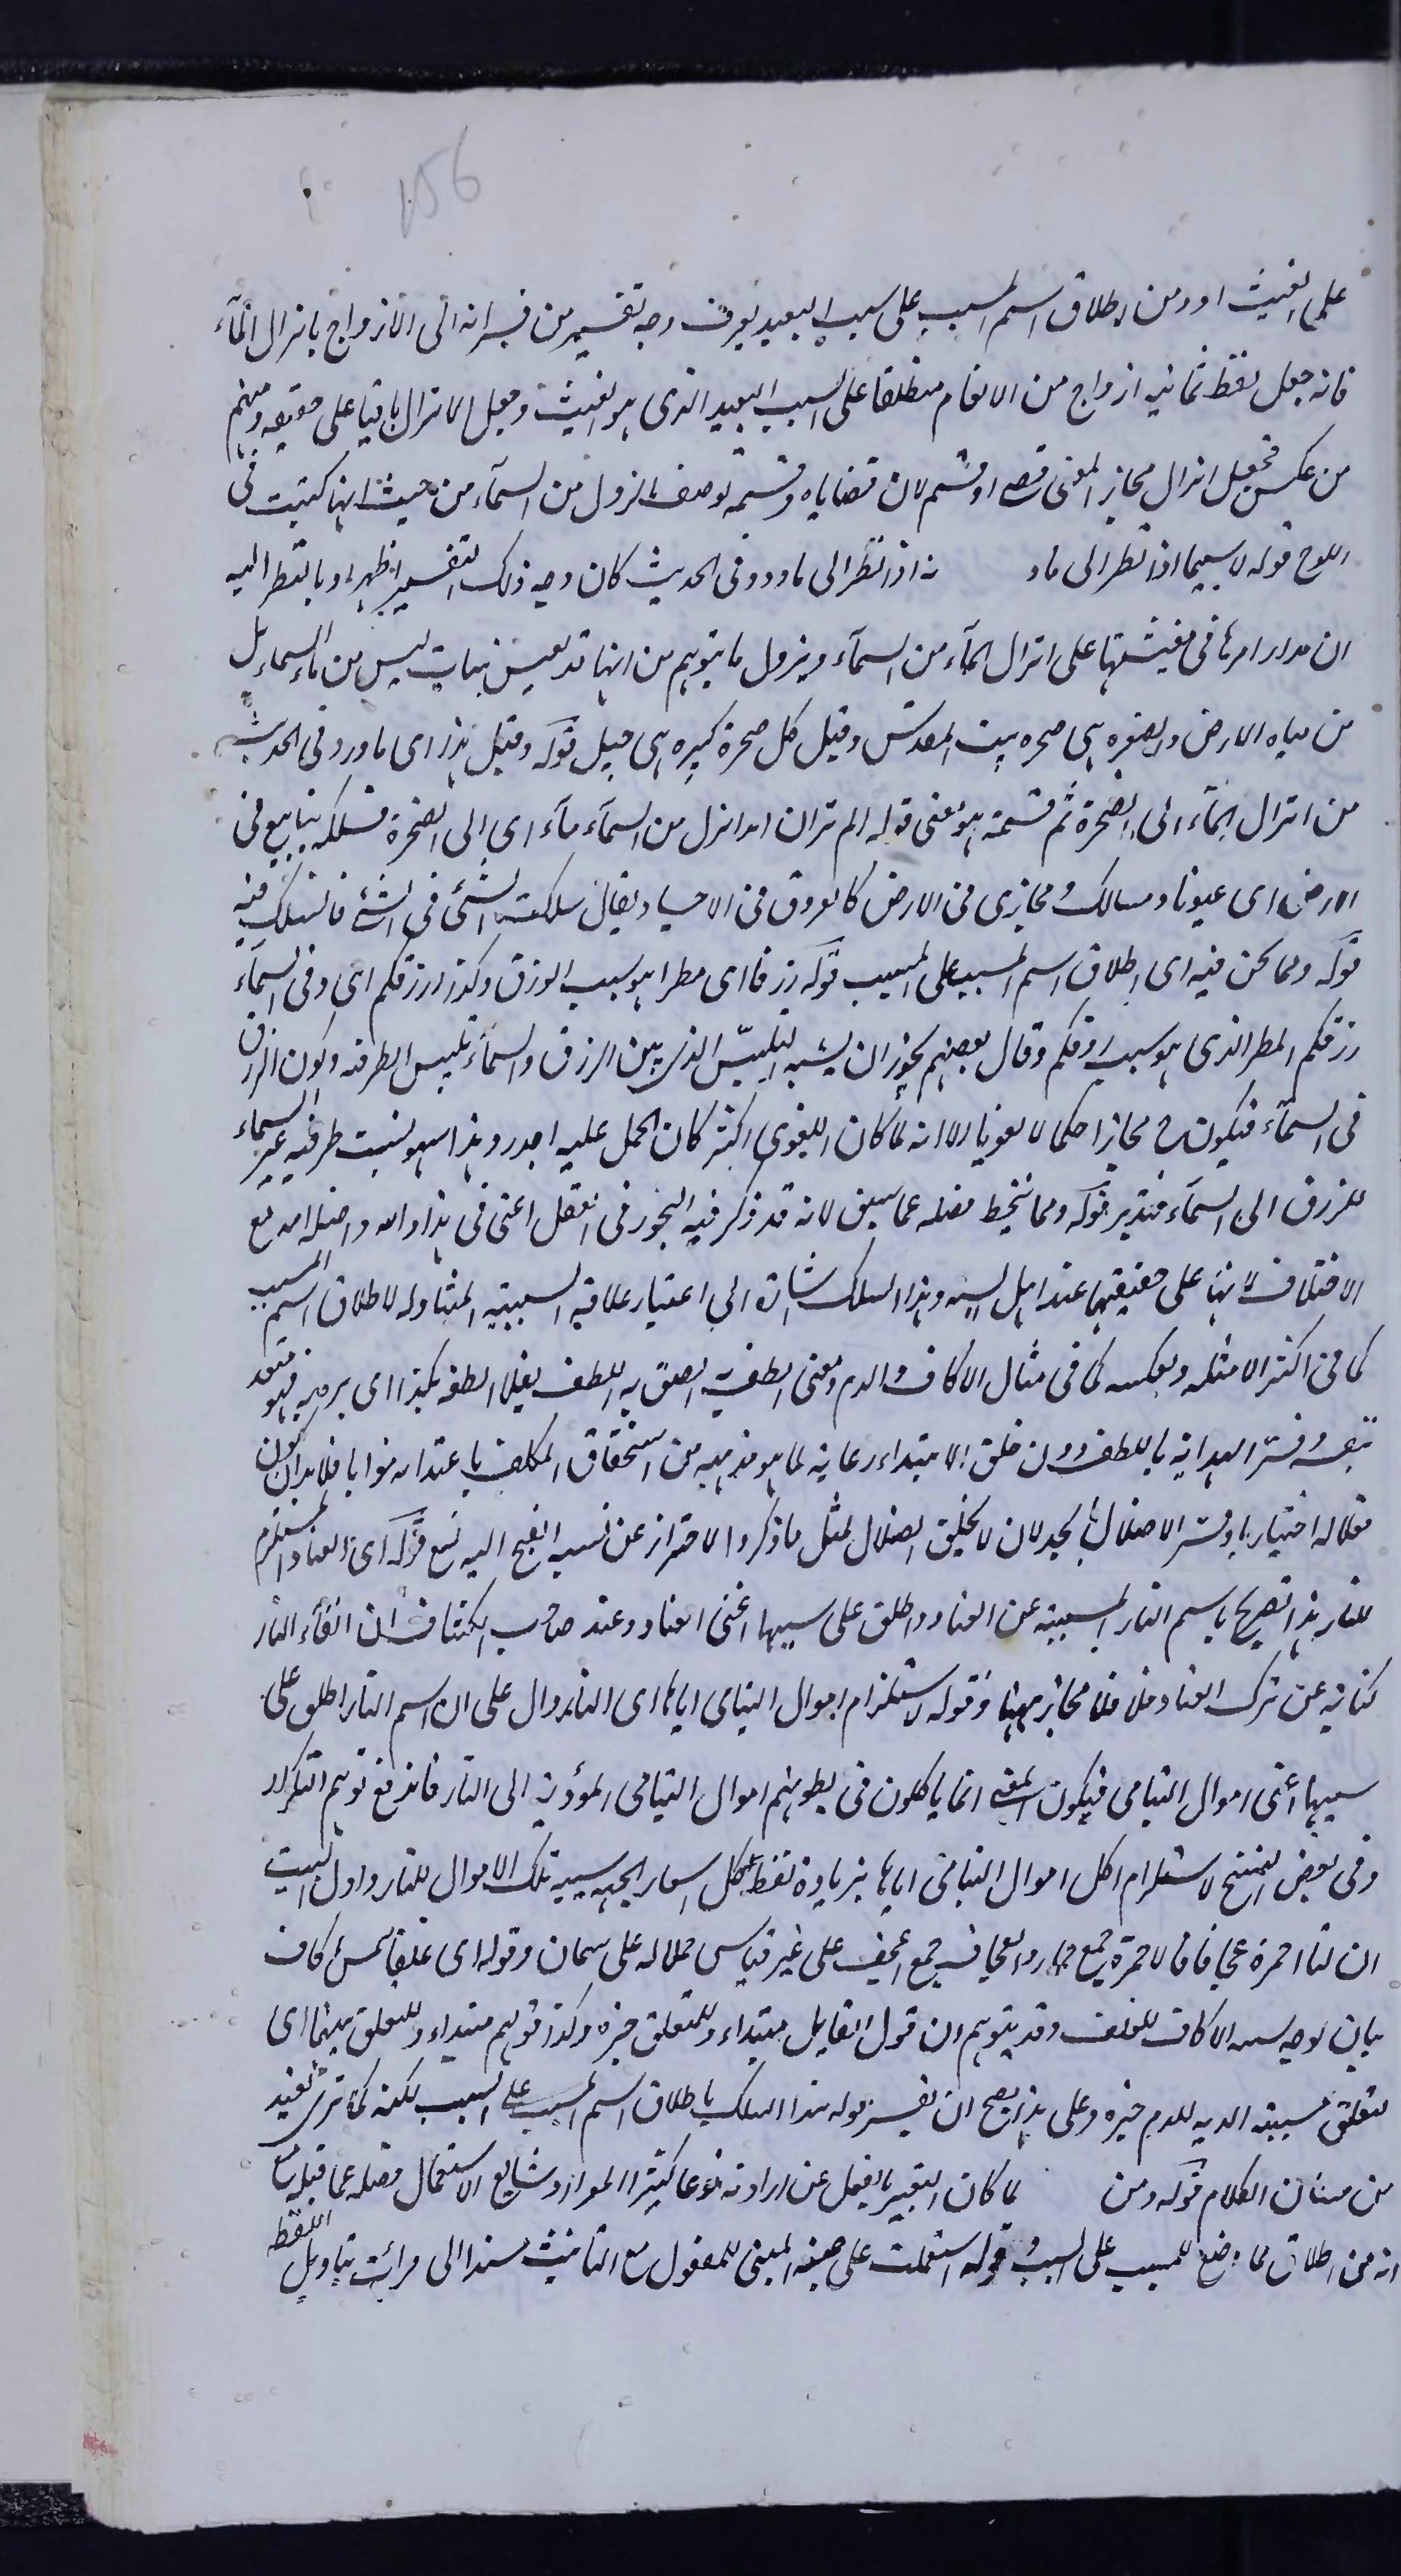 156
على الغيث او ومن اطلاق اسم المسبب على سببه البعيد يعرف وجه تفسير من فسر انزال الازواج بانزال الماء
فانه جعل لفظ ثمانية ازواج من الانعام مطلقا على السبب البعيد الذى هو الغيث وجعل الانزال باقيا على حقيقته ومنهم
من عكس فجعل انزال مجازا لمعنى قضى او قسم لان قضاياه وقسمه توصف بالنزول من السماء من حيث انها كتبت فى
اللوح قوله لا سيما اذا نظر الى ما ورد نه اذا نظر الى ما ورد فى الحديث كان وجه ذلك التفسير اظهر اذ بالنظر اليه
ان مدار امرها فى معيشتها على انزال الماء من السماء ويزول ما يتوهم من انها قد تعيش بنبات ليس من ماء السماء بل
من مياه الارض والصخرة هى صخرة بيت المقدس وقيل كل صخرة كبيرة هى جبل قوله وقيل هذا اى ما ورد فى الحديث
من انزال الماء الى الصخرة ثم قسمته هو معنى قوله الم تر ان الله انزل من السماء ماء اى الى الصخرة فسلكه ينابيع فى
الارض اى عيونا ومسالك ومجارى فى الارض كالعروق فى الاجساد يقال سلكت الشئ فى الشئ فانسلك فيه
قوله ومما نحن فيه اى اطلاق اسم المسبب على السبب قوله رزقا اى مطرا هو سبب الرزق وكذا رزقكم اى وفى السماء
رزقكم المطر الذى هو سبب رزقكم وقال بعضهم يجوز ان يشبه التلبس الذى بين الرزق والسماء بتلبس الظرفية وكون الرزق
فى السماء فيكون ح مجازا حكما لا لغويا الا انه لما كان اللغوى اكثر كان الحمل عليه اجدر وهذا سهو لنسبت ظرفيه غير السماء
للرزق الى السماء فتدبر قوله ومما ينخرط فصله عما سبق لانه قد ذكر فيه التجوز فى الفعل اعنى فى هذا اراد الله واضله الله مع
الاختلاف لانها على حقيقتها عند اهل السنه وهذا السلك اشارة الى اعتبار علاقة السببية المتناوله لاطلاق اسم المسبب
كما فى اكثر الامثله وبعكسه كما فى مثال الاكاف والدم ومعنى الطف به الصق به اللطف يقال الطفه بكذا اى بره به فهو متعد
بنفسه وفسر الهداية باللطف دون خلق الاهتداء رعاية لما هو مذهبه من استحقاق المكلف باهتدائه ثوابا فلا بد ان يكون
فعلا له اختياريا وفسر الاضلال بالخذلان لا بخلق الضلال لمثل ما ذكر والاحتراز عن نسبة القبح اليه تع قوله اى العناد المستلزم
للنار هذا تصريح باسم النار المسببة عن العناد واطلق على سببها اعنى العناد وعند صاحب الكشاف ان اتقاء النار
كناية عن ترك العناد فلا مجاز ههنا وقوله لاستلزام اموال اليتامى اياها اى النار دال على ان اسم النار اطلق على
سببها اعنى اموال اليتامى فيكون المعنى انما ياكلون فى بطونهم اموال اليتامى المؤدية الى النار فاندفع توهم التكرار
وفى بعض النسخ لاستلزام اكل اموال اليتامى اياها بزيادة لفظ اكل اشعارا بجهة سببية تلك الاموال للنار واول البيت
ان لنا احمرة عجافا فالاحمرة جمع حمار والعجاف جمع اعجف على غير قياس حملا له على سمان وقوله اى علفا بثمن اكاف
بيان لوجه الاكاف للعلف وقد يتوهم ان قول القايل مبتداء وللتعلق خبره وكذا قولهم مبتداء وللتعلق بينهما اى
لتعلق مسببية الديه للدم خبره وعلى هذا يصح ان يفسر قوله هذا السلك باطلاق اسم المسبب على السبب لكنه كما ترى بعيد
من مساق الكلام قوله ومن لما كان التعبير بالفعل عن ارادته نوعا كثير الموارد وشايع الاستعمال فصله عما قبله مع
انه من اطلاق ما وضع للمسبب على السبب وقوله استعملت على صيغة المبنى للمفعول مع التانيث مسندا الى قرأت بتاويل اللفظة